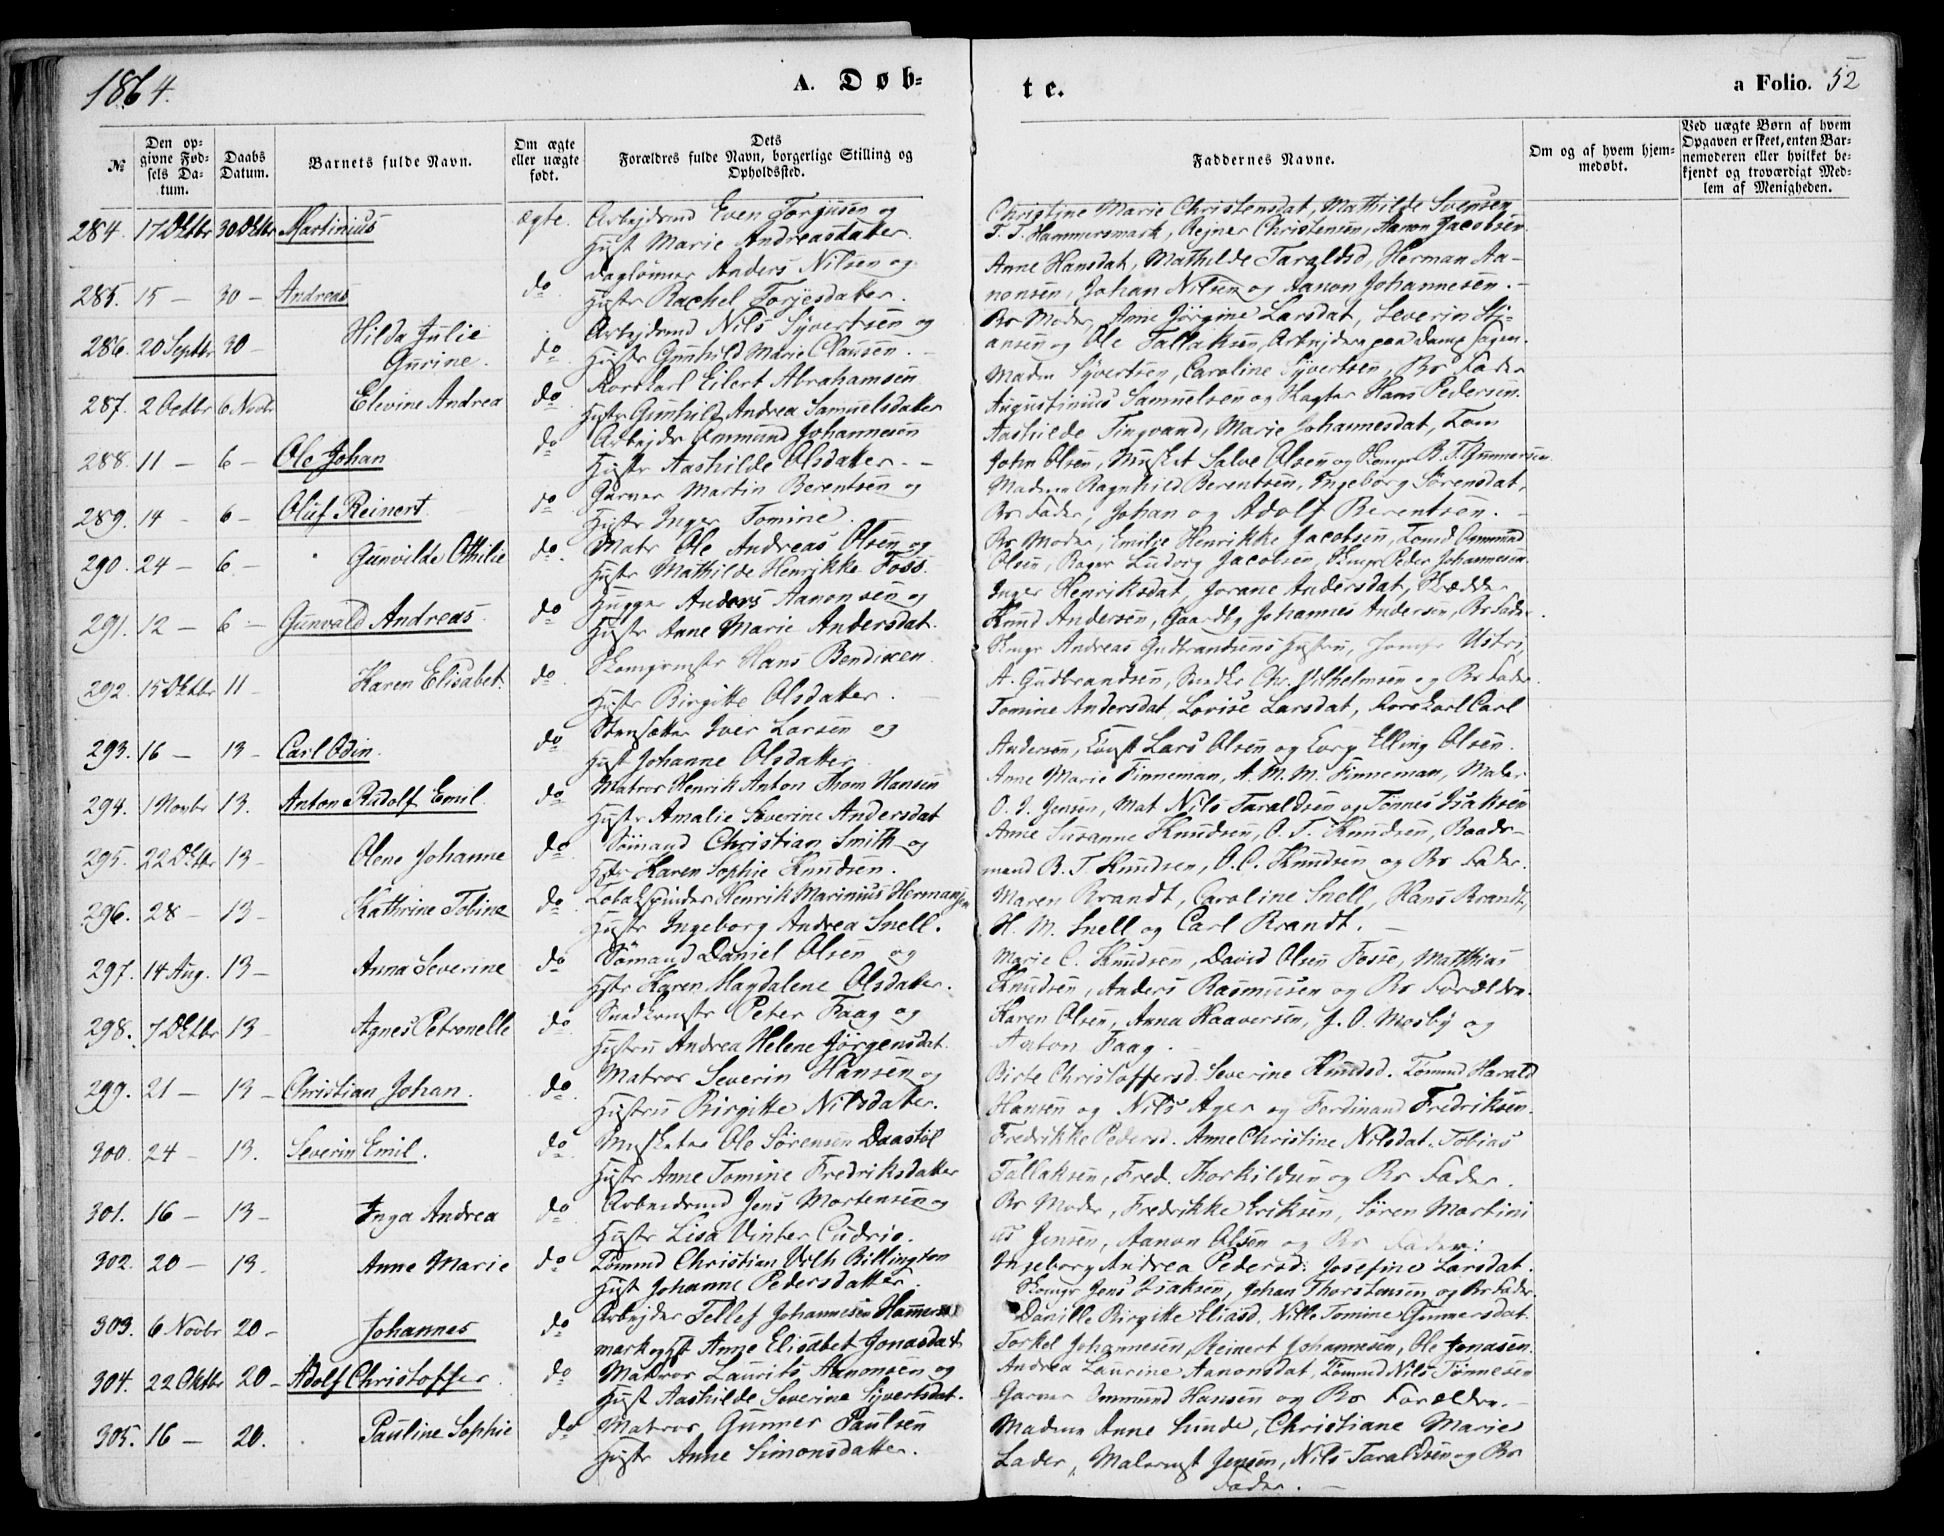 1864. A. Døb-
te. a Folio. 52
№
Den op-
givne Fød-
sels Da-
tum.
Daabs
Datum.
Barnets fulde Navn.
Om ægte
eller uægte
født.
Dets
Forældres fulde Navn, borgerlige Stilling og
Opholdssted.
Faddernes Navne.
Om og af hvem hjem-
medøbt.
Ved uægte Børn af hvem
Opgaven er skeet, enten Bar-
nemoderen eller hvilket be-
kjendt og troværdigt Med-
lem af Menigheden.
284. 17 Oktbr 30 Oktbr Martinius ægte. Arbejdsmd Even Torgusen og
Hust Marie Andreasdatter.
Christine Marie Christensdat, Mathilde Svensen
T. T. Hammersmark, Rejner Christensen, Aanon Jacobsen.
285. 15 — 30 — Andreas do Daglønner Anders Nilsen og
Hustr Rachel Torjesdatter.
Anne Hansdat, Mathilde Taraldsd, Herman Aa-
nonsen, Johan Nilsen og Aanon Johannesen.
286. 20 Septbr 30 — Hilda Julie
Gurine. do Arbejdsmd Nils Syvertsen og
Hustr Gunhild Marie Clausen. —
Br Moder, Anne Jørgine Larsdat, Severin
ansen og Ole Tallaksen, Arbejdere paa Damp Sagen.
287. 2 Octbr 6 Novbr Elevine Andrea do Rorskarl Eilert Abrahamsen
Hustr Gunhild Andrea Samuelsdatter
Madm Syvertsen, Caroline Syvertsen, Br Fader
Augustinius Samuelsen og Hans Pedersen.
288. 11 — 6 — Ole Johan do Arbejdr Ommund Johannesen
Hustr Aashilde Olsdatter. —
Aashilde Tingvand, Marie Johannesdat, Tom
John Olsen, Musket Salve Olsen og Skomgr B. T. Gunnersen
289. 14 — 6 — Oluf Reinert. do Garver Martin Berentsen og
Hustr Inger Tomine.
Madm Ragnhild Berentsen, Ingeborg Sørensdat,
Br Fader, Johan og Adolf Berentsen. —
290. 24 — 6 — Gunvilde Othilie do Matr Ole Andreas Olsen og
Hustr Mathilde Henrikke Foss.
Br Moder, Emilie Henrikke Jacobsen, Tomd Ommund
Olsen, Bager Ludvig Jacobsen, Skomgr Peder Johannesen.
291. 12 — 6 — Gunvald Andreas. do Hugger Anders Aanonsen og
Hustr Anne Marie Andersdat.
Inger Henriksdat, Jorane Andersdat, Skrædder
Knud Andersen, Gaardbg Johannes Andersen, Br Fader.
292. 15 Oktbr 11 — Karen Elisabet. do Skomgrmstr Hans Bendixen
Hustr Birgitte Olsdatter. —
Skmgr Andreas Gudbrandsens Hustru, Jomfr
A. Gudbrandsen, Snedkr Chr. Vilhelmsen og Br Fader.
293. 16 — 13 — Carl Odin. do Stensætter Iver Larsen og
Hust Johanne Olsdatter
Tomine Andersdat, Lovise Larsdat, Rorskarl Carl
Andersen, Lars Olsen og Elling Olsen.
294. 1 Novbr 13. Anton Rudolf Emil. do Matros Henrik Anton Thom Hansen
Hustr Amalie Severine Andersdat
Anne Marie Finneman, A. M. M. Finneman, Maler
O. J. Jensen, Mat Nils Taraldsen og Tønnes Isaksen
295. 22 Oktbr 13 — Olene Johanne do Sømand Christian Smith og
Hstr Karen Sophie Knudsen.
Anne Susanne Knudsen, O. T. Knudsen, Baads-
mand B. T. Knudsen, O. C. Knudsen og Br Fader.
296. 28 — 13 — Kathrine Tobine do Tobakspinder Henrik Marinius Hermansen
Hustr Ingeborg Andrea Snell.
Maren Brandt, Caroline Snell, Hans Brandt,
H. M. Snell og Carl Brandt. —
297. 14 Aug. 13 — Anna Severine do Sømand Daniel Olsen og
Hstr Karen Magdalene Olsdatter.
Marie C. Knudsen, David Olsen Fosse, Matthias
Knudsen, Anders Rasmussen og Br Forældre.
298. 7 Oktbr 13 — Agnes Petronelle do Snedkrmstr Peter Faag og
Hustru Andrea Helene Jørgensdat.
Karen Olsen, Anna Haaversen, J. O. Mosby og
Anton Faag.
299. 21 — 13 — Christian Johan. do Matros Severin Hansen og
Hustru Birgitte Nilsdatter.
Birte Christoffersd. Severine Knudsd. Tømmd Harald
Hansen og Nils Ager og Ferdinand Fredriksen.
300. 24 — 13. Severin Emil. do Musketer Ole Sørensen Daastøl
Hustr Anne Tomine Fredriksdatter
Fredrikke Pedersd. Anne Christine Nilsdat. Tobias
Tallaksen, Fred. Thorkildsen og Br Fader.
301. 16 — 13 — Inga Andrea do Arbeidsmd Jens Mortensen og
Hustr Lisa Vinter Cudrio.
Br Moder, Fredrikke Eriksen, Søren Martini
us Jensen, Aanon Olsen og Br Fader.
302. 20 — 13. Anne Marie do Tømmd Christian Vilh Billington
Hust Johanne Pedersdatter.
Ingeborg Andrea Pedersd. Josefine Larsdat.
Skomgr Jens Isaksen, Johan Thorstensen og Br Fader.
303. 6 Novbr 20 — Johannes do Arbejder Tellef Johannesen Hammers
mark og Hst Anne Elisabet Jonasdat.
Danille Birgitte Eliasd. Nille Tomine Gunnersdat.
Torkel Johannesen, Reinert Johannesen, Ole Jonasen.
304. 22 Oktbr 20 — Adolf Christoffer. do Matros Laurits Aanonsen og
Hust Aashilde Severine Syvertsdat.
Andrea Laurine Aanonsdat, Tømmd Nils Tønnesen
Garver Ommund Hansen og Br Forældre. —
305. 16 — 20. Pauline Sophie do Matros Gunner Paulsen
Hustr Anne Simonsdatter.
Madm Anne Sunde, Christiane Marie
Lader, Malermst Jensen, Nils Taraldsen og Br
Fader. —